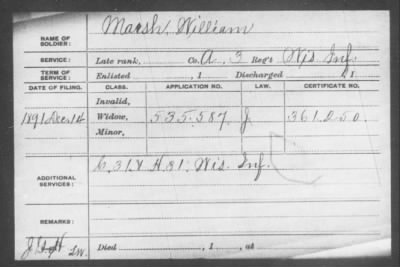 NAME OF SOLDIER: Marsh, William
SERVICE: Late rank, Co. A, 3 Reg't Wis Inf.
TERM OF SERVICE: Enlisted , 1 Discharged , 1
DATE OF FILING. CLASS. APPLICATION NO. LAW. CERTIFICATE NO.
Invalid,
1891 Dec 14 Widow, 535.587 J 361.250.
Minor,
ADDITIONAL SERVICES: C. 31. & H 31. Wis. Inf.
REMARKS:
Died , 1 , at